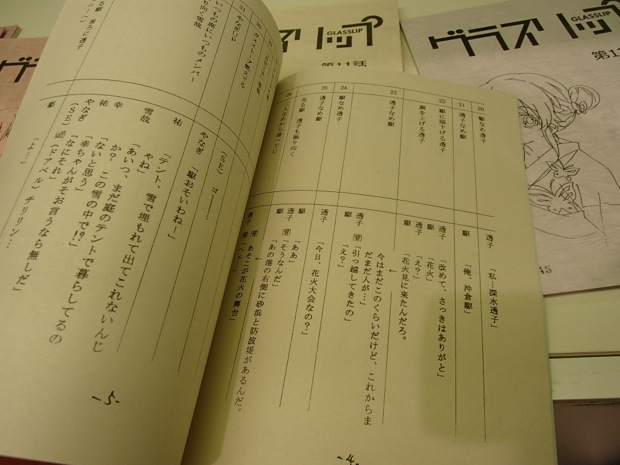 グラスリップ
GLASSLIP
第11話
グラスリップ
GLASSLIP
第1
20
駆なめ透子
透子
「私…深水透子」
21
透子なめ駆
駆
「俺、沖倉駆」
22
駆に頭下げる透子
顔を上げる透子
透子
「改めて、さっきはありがと」
駆
「花火」
透子
「え？」
駆
「花火見に来たんだろ。
今はまだこのくらいだけど、これからま
だまだ人が…」
23
透子なめ駆
透子
「引っ越してきたの」
駆
「え？」
24
駆なめ透子
透子
「今日、花火大会なの？」
25
透子なめ駆
駆
「ああ」
見る駆 透子も振り向く
透子
「そうなんだ」
駆
「あの港の右側に砂浜と防波堤があるんだ。
あそこが花火の舞台」
透子
-4-
31
いつもの夜にいつものメンバー
やなぎ
「駆おそいわね！」
祐
「テント、雪で埋もれて出てこれないんじ
ゃね」
雪哉
「あいつ、まだ庭のテントで暮らしてるの
か？ この雪の中で!?」
幸
「ないと思う」
祐
「幸ちゃんがそお言うなら無しだ」
やなぎ
「なにそれ」
(SE)
(ドアベル) チリリン…
駆
「よ…」
-5-
45